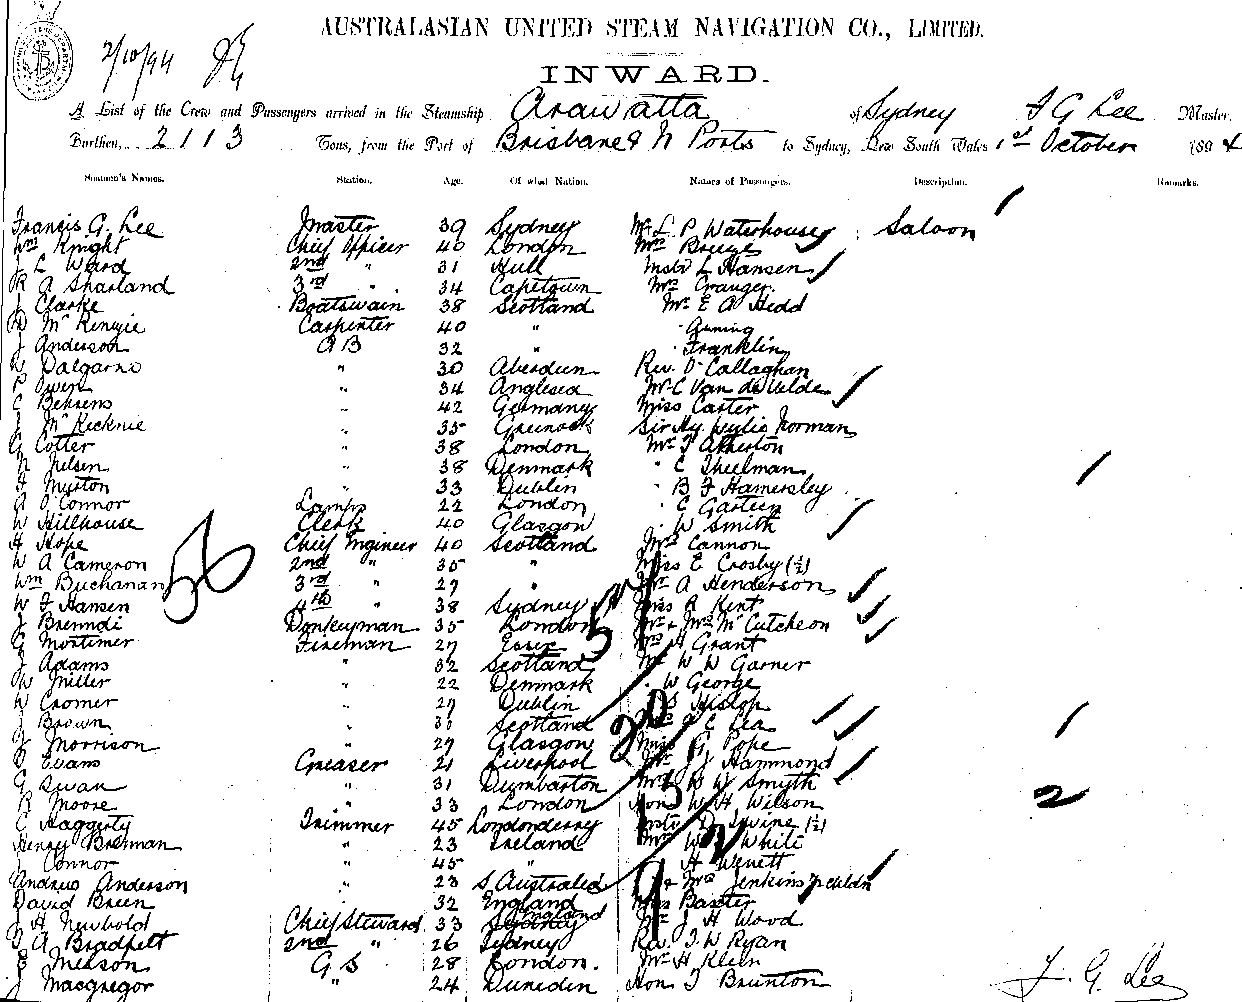 AUSTRALASIAN UNITED STEAM NAVIGATION CO., LIMITED.
2/10/94
INWARD.
A List of the Crew and Passengers arrived in the Steamship Arawatta of Sydney F G Lee Master
Burthen, 2113 Tons, from the Port of Brisbane & N Ports to Sydney, New South Wales 1st October 1894
Seamen's Names. Station. Age. Of what Nation. Names of Passengers. Description. Remarks.
Francis G. Lee Master 39 Sydney Mr L P Waterhouse Saloon
Wm Knight Chief Officer 40 London Mrs Breeze
J L Ward 2nd " 31 Hull Mstr L Hansen
R A Sharland 3rd " 34 Capetown Mrs Granger
J Clarke Boatswain 38 Scotland Mr E A Hedd
D McKenzie Carpenter 40 "
J Anderson A B 32 " Franklin
W Dalgarno " 30 Aberdeen Rev O'Callaghan
P Owen " 34 Anglesea Mr C Van de Velde
C Behrens " 42 Germany Miss Carter
J McKechnie " 35 Greenock Sir Hy Wylie Norman
G Cotter " 38 London Mr T Atherton
N Nelsen " 38 Denmark " C Theelman
F Murton " 33 Dublin " B F Hamersley
A O'Connor Lamps 22 London " C
W Hillhouse Clerk 40 Glasgow " W Smith
A Hope Chief Engineer 40 Scotland Mrs Cannon
W A Cameron 2nd " 35 " Miss E Crosby (½)
Wm Buchanan 3rd " 27 " Mr A Henderson
W F Hansen 4th " 38 Sydney Miss A Kent
56
J Donkeyman 35 London Mr & Mrs McCutcheon
57
G Mortimer Fireman 27 Essex Mrs H Grant
J Adams " 32 Scotland Mr W W Garner
W Miller " 22 Denmark " W George
W Cromer " 27 Dublin " S Hislop
J Brown " 30 Scotland Lea
20
J Morrison " 29 Glasgow Miss G Pope
D Evans Greaser 21 Liverpool Mr J J Hammond
G Swan " 31 Dumbarton W W Smyth
R Moore " 33 London Hon W H Wilson
2
C Haggerty Trimmer 45 Londonderry Mstr D Irvine (½)
Henry Brennan " 23 Ireland Mr W White
2
J Connor " 45 " " H Wenett
Andrew Anderson " 23 S. Australia & Mrs Jenkins
9
David Breen " 32 England Miss Baxter
J H Newbold Chief Steward 33 England Mr J H Wood
J A Bradfelt 2nd " 26 Sydney Rev. J. W Ryan
E Meason G S 28 London. Mr H Klein
J Macgregor " 24 Dunedin Hon T Brunton
F. G. Lee